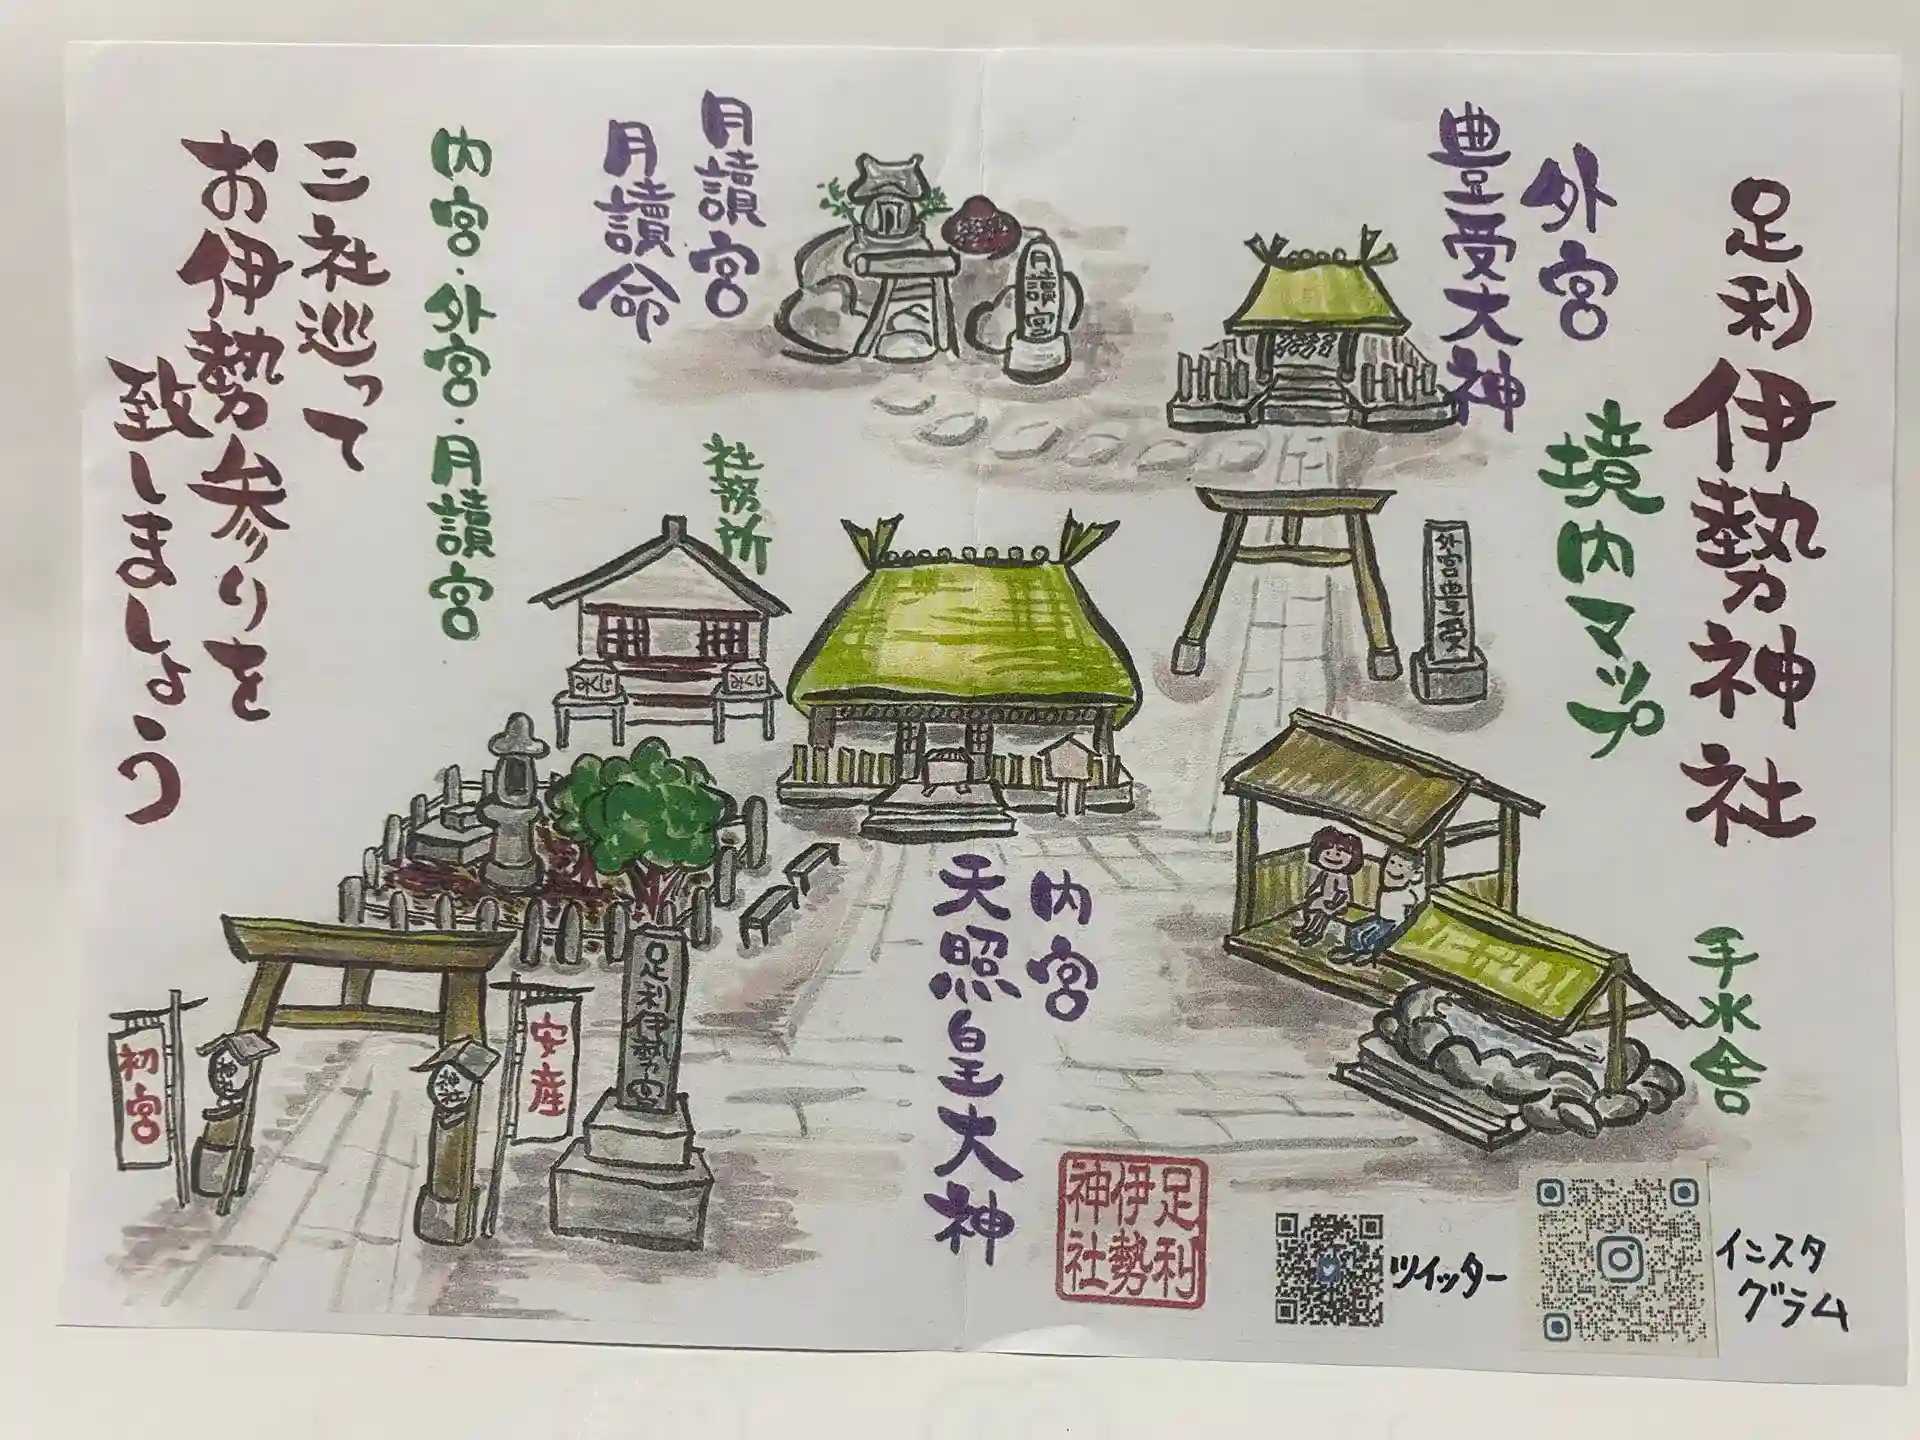 足利伊勢神社
境内マップ
外宮
豊受大神
月讀宮
月讀命
月讀宮
内宮・外宮・月讀宮
三社巡って
お伊勢参りを
致しましょう
社務所
外宮豊受
内宮
天照皇大神
手水舎
足利伊勢宮
安産
初宮
神社
神社
足利
伊勢
神社
ツイッター
インスタ
グラム